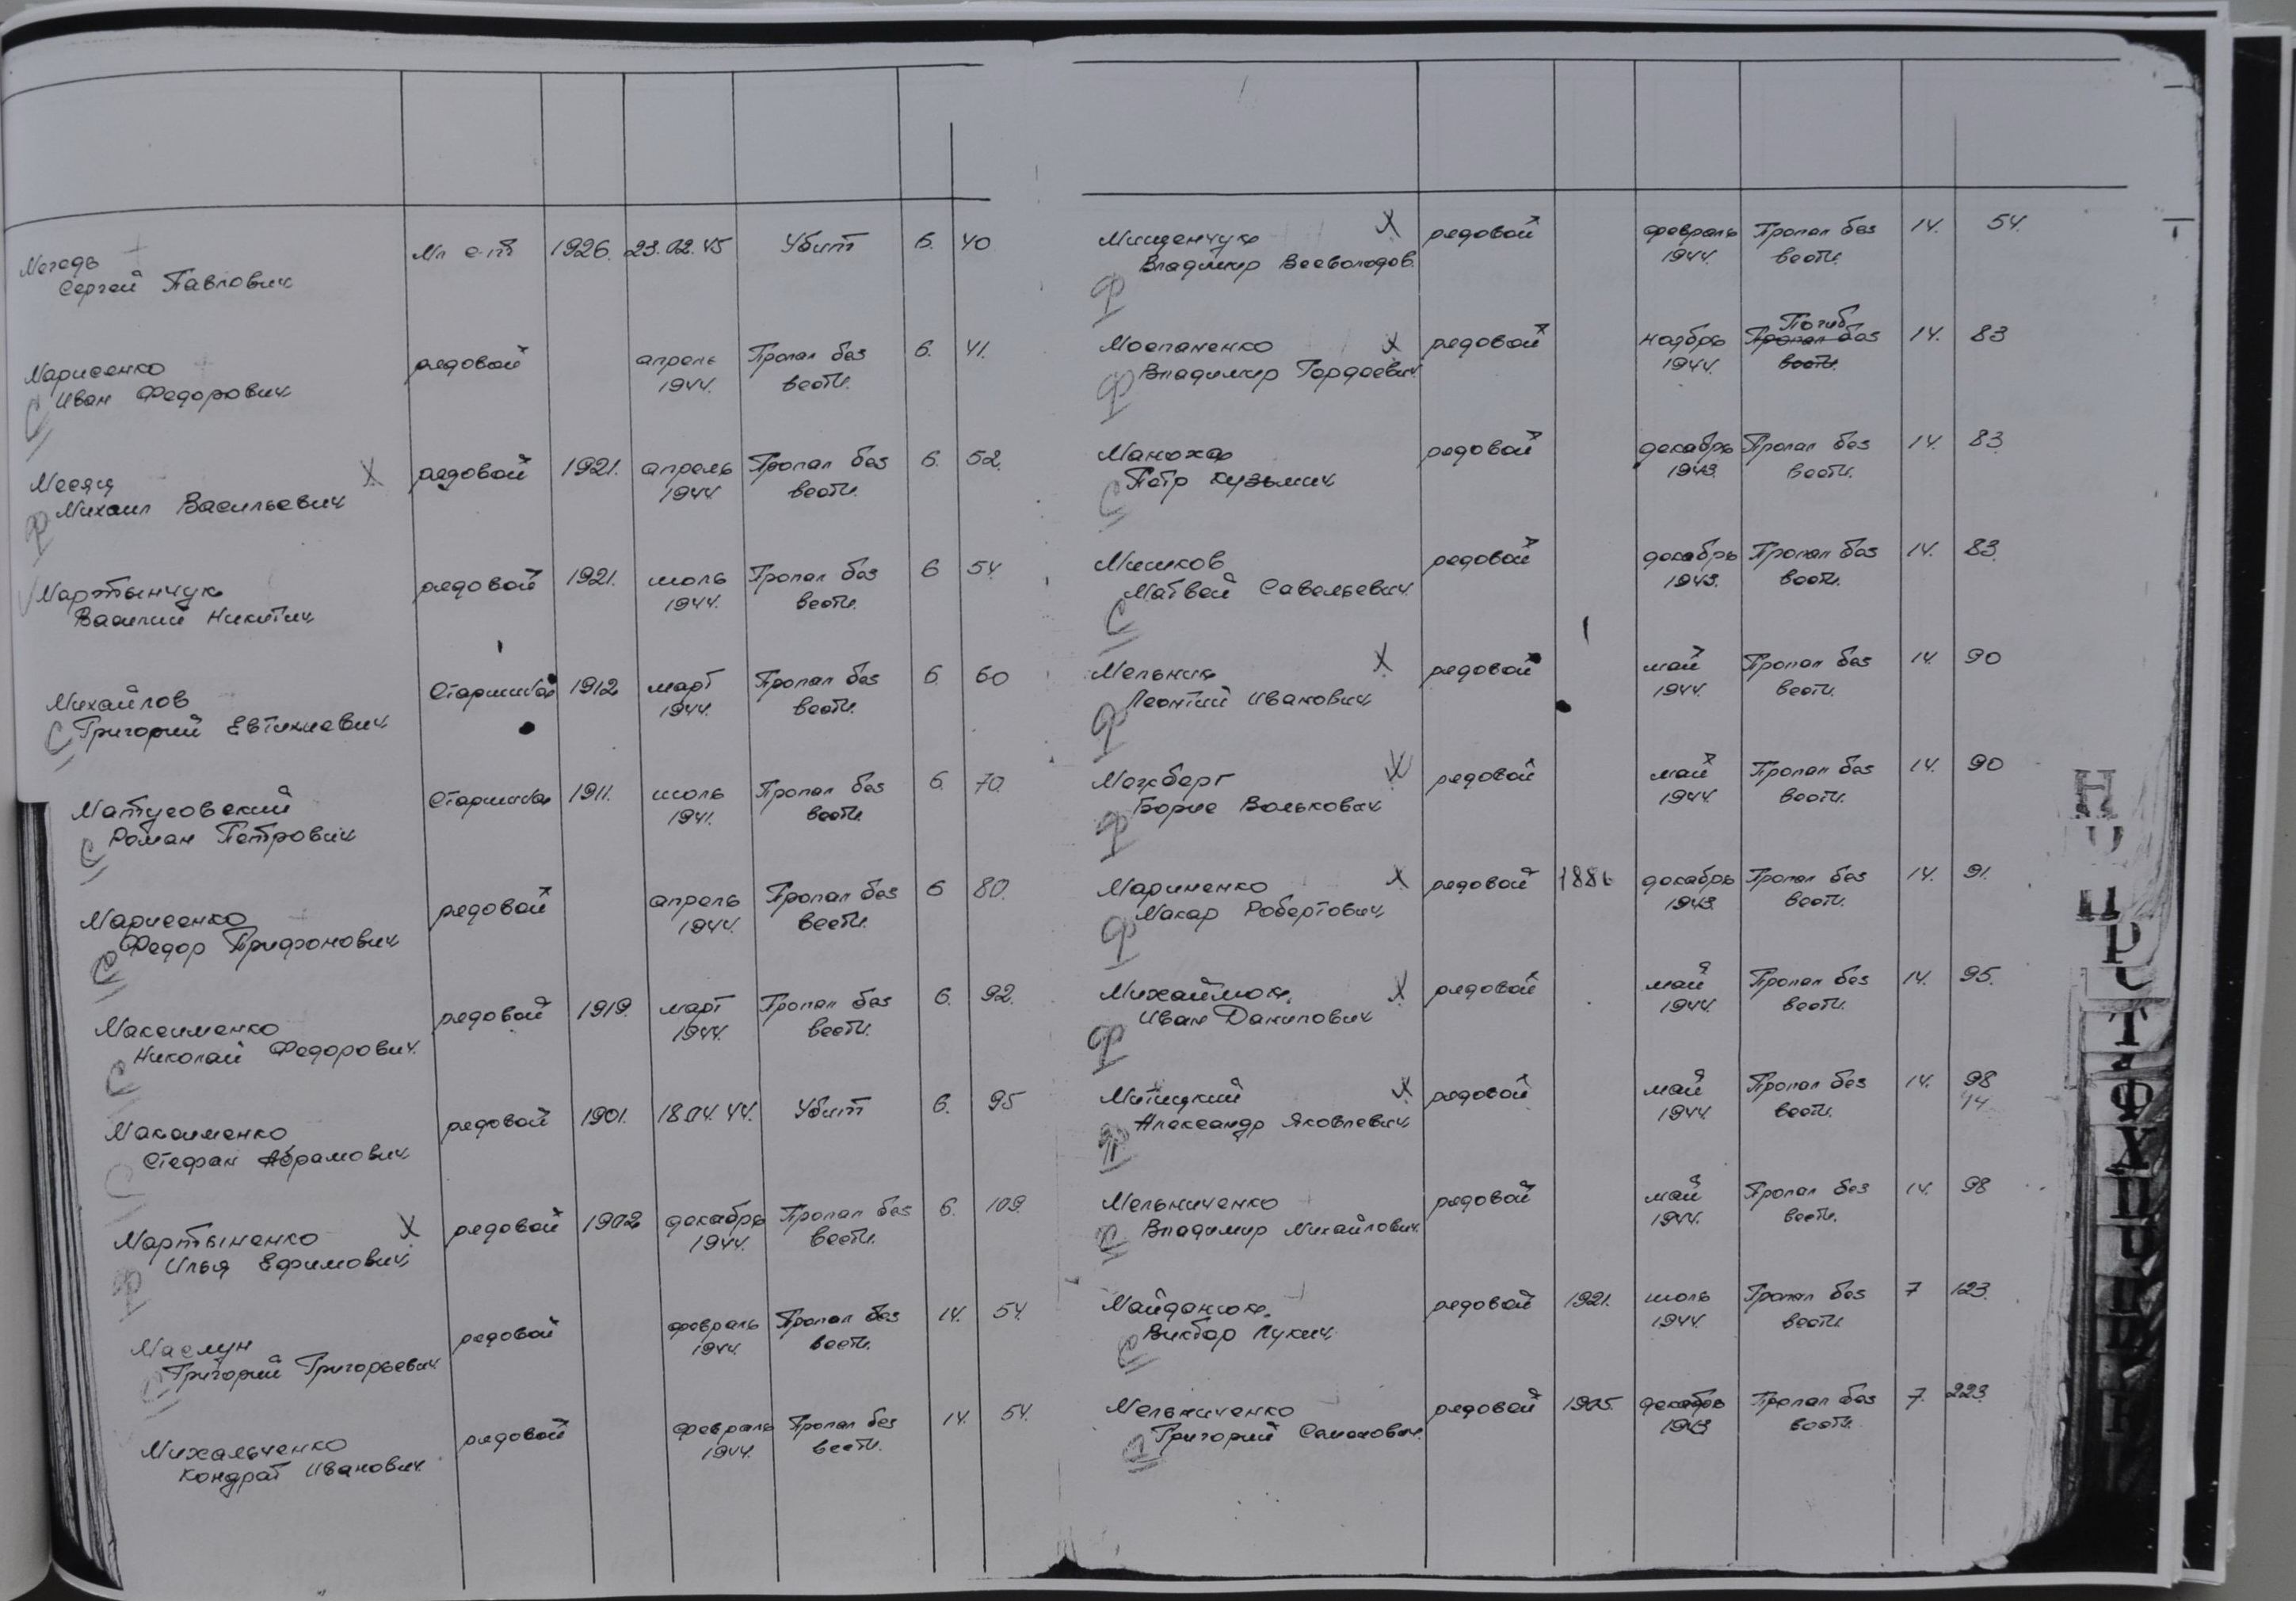 Мегедь Мл с-т 1926. 23.02.45 Убит 6. 40
Сергей Павлович
Марисенко рядовой апрель Пропал без 6. 41.
Иван Федорович 1944. вести.
С
Месяц Х рядовой 1921. апрель Пропал без 6. 52.
Михаил Васильевич 1944 вести.
Ф
Мартынчук рядовой 1921. июль Пропал без 6 54.
Василий Никитич 1944. вести.
Михайлов Старшина 1912 март Пропал без 6. 60
Григорий Евтихиевич 1944. вести.
С
Матусовский Старшина 1911. июль Пропал без 6. 70.
Роман Петрович 1941. вести.
С
Марисенко рядовой апрель Пропал без 6 80.
Федор Трифонович 1944. вести.
С
Максименко рядовой 1919. март Пропал без 6. 92.
Николай Федорович 1944. вести.
С
Максименко рядовой 1901. 18.04.44. Убит 6. 95
Стефан Абрамович
С
Мартыненко Х рядовой 1902 декабрь Пропал без 6. 109.
Илья Ефимович 1944. вести.
Ф
Маслун рядовой февраль Пропал без 14. 54.
Григорий Григорьевич 1944. вести.
С
Михальченко рядовой февраль Пропал без 14. 54.
Кондрат Иванович 1944. вести.
Мищенчук Х рядовой февраль Пропал без 14. 54.
Владимир Всеволодов. 1944. вести.
Ф
Погиб
Моспаненко Х рядовой ноябрь Пропал без 14. 83
Владимир Гордеевич 1944. вести.
Ф
Манохар рядовой декабрь Пропал без 14. 83.
Петр Кузьмич 1943. вести.
С
Мишков рядовой декабрь Пропал без 14. 83.
Матвей Савельевич 1943. вести.
С
Мельник Х рядовой май Пропал без 14. 90
Леонтий Иванович 1944. вести.
Ф
Межберг Х рядовой май Пропал без 14. 90
Борис Волькович 1944. вести.
Ф
Мариненко Х рядовой 1886 декабрь Пропал без 14. 91.
Макар Робертович 1943. вести.
Ф
Михаймюк. Х рядовой май Пропал без 14. 95.
Иван Данилович 1944. вести.
Ф
Митицкий Х рядовой май Пропал без 14. 98
Александр Яковлевич 1944 вести. 14
Ф
Мельниченко рядовой май Пропал без 14. 98
Владимир Михайлович 1944. вести.
С
Майданюк. рядовой 1921. июль Пропал без 7 123.
Виктор Лукич 1944. вести.
С
Мельниченко рядовой 1905. декабрь Пропал без 7. 223.
Григорий Семенович 1943 вести.
С
Н
О
П
Р
С
Т
Ф
Х
Ц